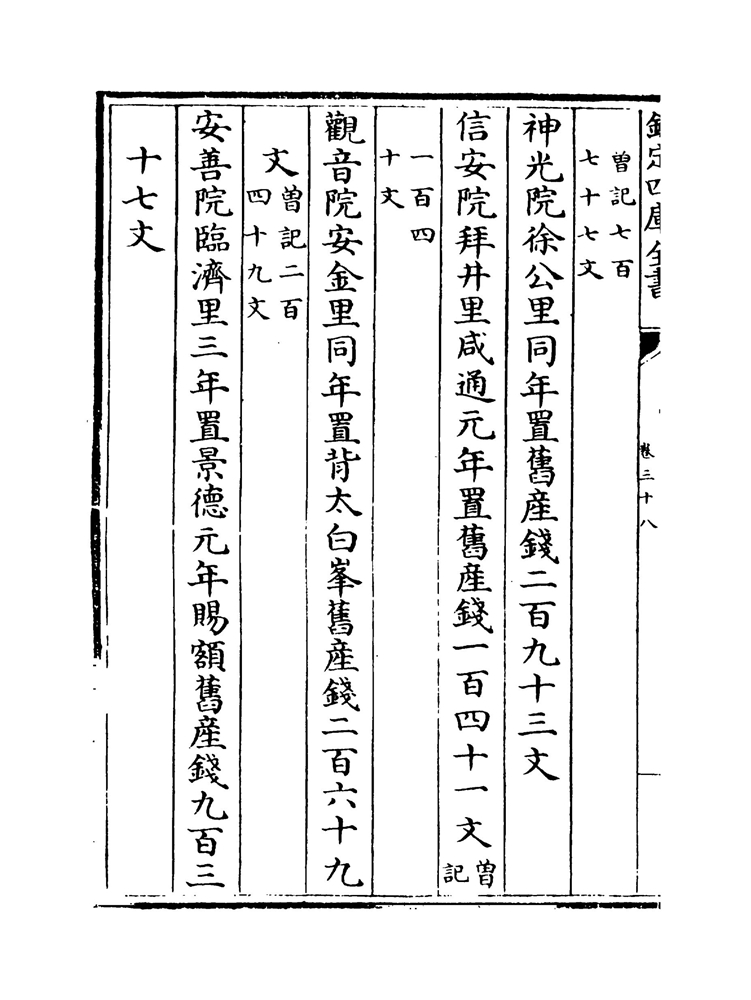 欽定四庫全書
卷三十八
曾記七百
七十七文
神光院徐公里同年置舊産錢二百九十三文
信安院拜井里咸通元年置舊産錢一百四十一文曾記
一百四
十文
觀音院安金里同年置背太白峯舊産錢二百六十九
文曾記二百
四十九文
安善院臨濟里三年置景德元年賜額舊産錢九百三
十七文